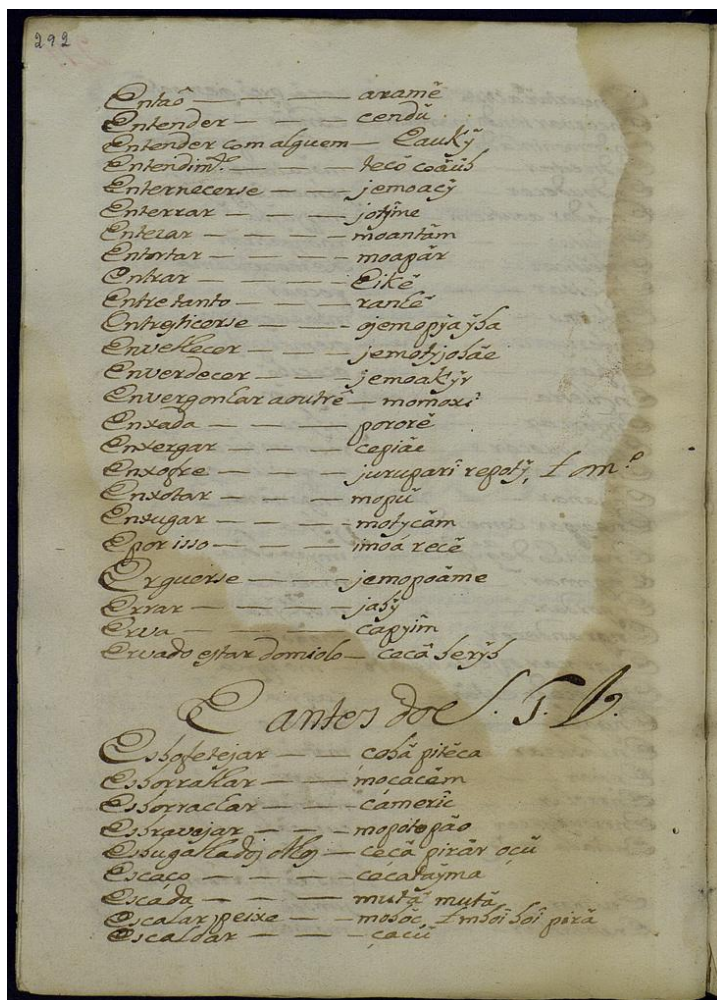 292
Entaõ — — — — aramẽ
Entender — — — — cendũ
Entender com alguem —
Entendim.to — — — tecó coäub
Enternecerse — — — jemoacÿ
Enterrar — — — — jotÿme
Entezar — — — — moantãm
Entortar — — — — moapãr
Entrar — — — —
Entre tanto — — — ranhẽ
— — — ojemopÿaÿba
Envelhecer — — — jemotyjobãe
Enverdecer — — — jemoakÿr
Envergonhar a outrẽ —
Enxada — — — — pororẽ
Enxergar — — — — cepiãc
Enxofre — — — — juruparî repotÿ, 
Enxotar — — — — mopũ
Enxugar — — — — motycãm
E por isso — — — — imoá recẽ
Erguerse — — — jemopoãme
Errar — — — — jabÿ
Erva — — — — cãpyîm
Ervado estar do miolo — cecâ berÿb
E antes do S. T. V.
Esbofetejar — — — cobã pitẽca
Esborralhar — — — mocacẽm
Esborrachar — — — cámerîc
Esbravejar — — — mopotopão
Esbugalhados olhos — ceçã pirãr oçũ
Escaço — — — — cecateÿma
Escáda — — — — mutã mutã
Escalar peixe — — — pirã
Escaldar — — — — çacũ